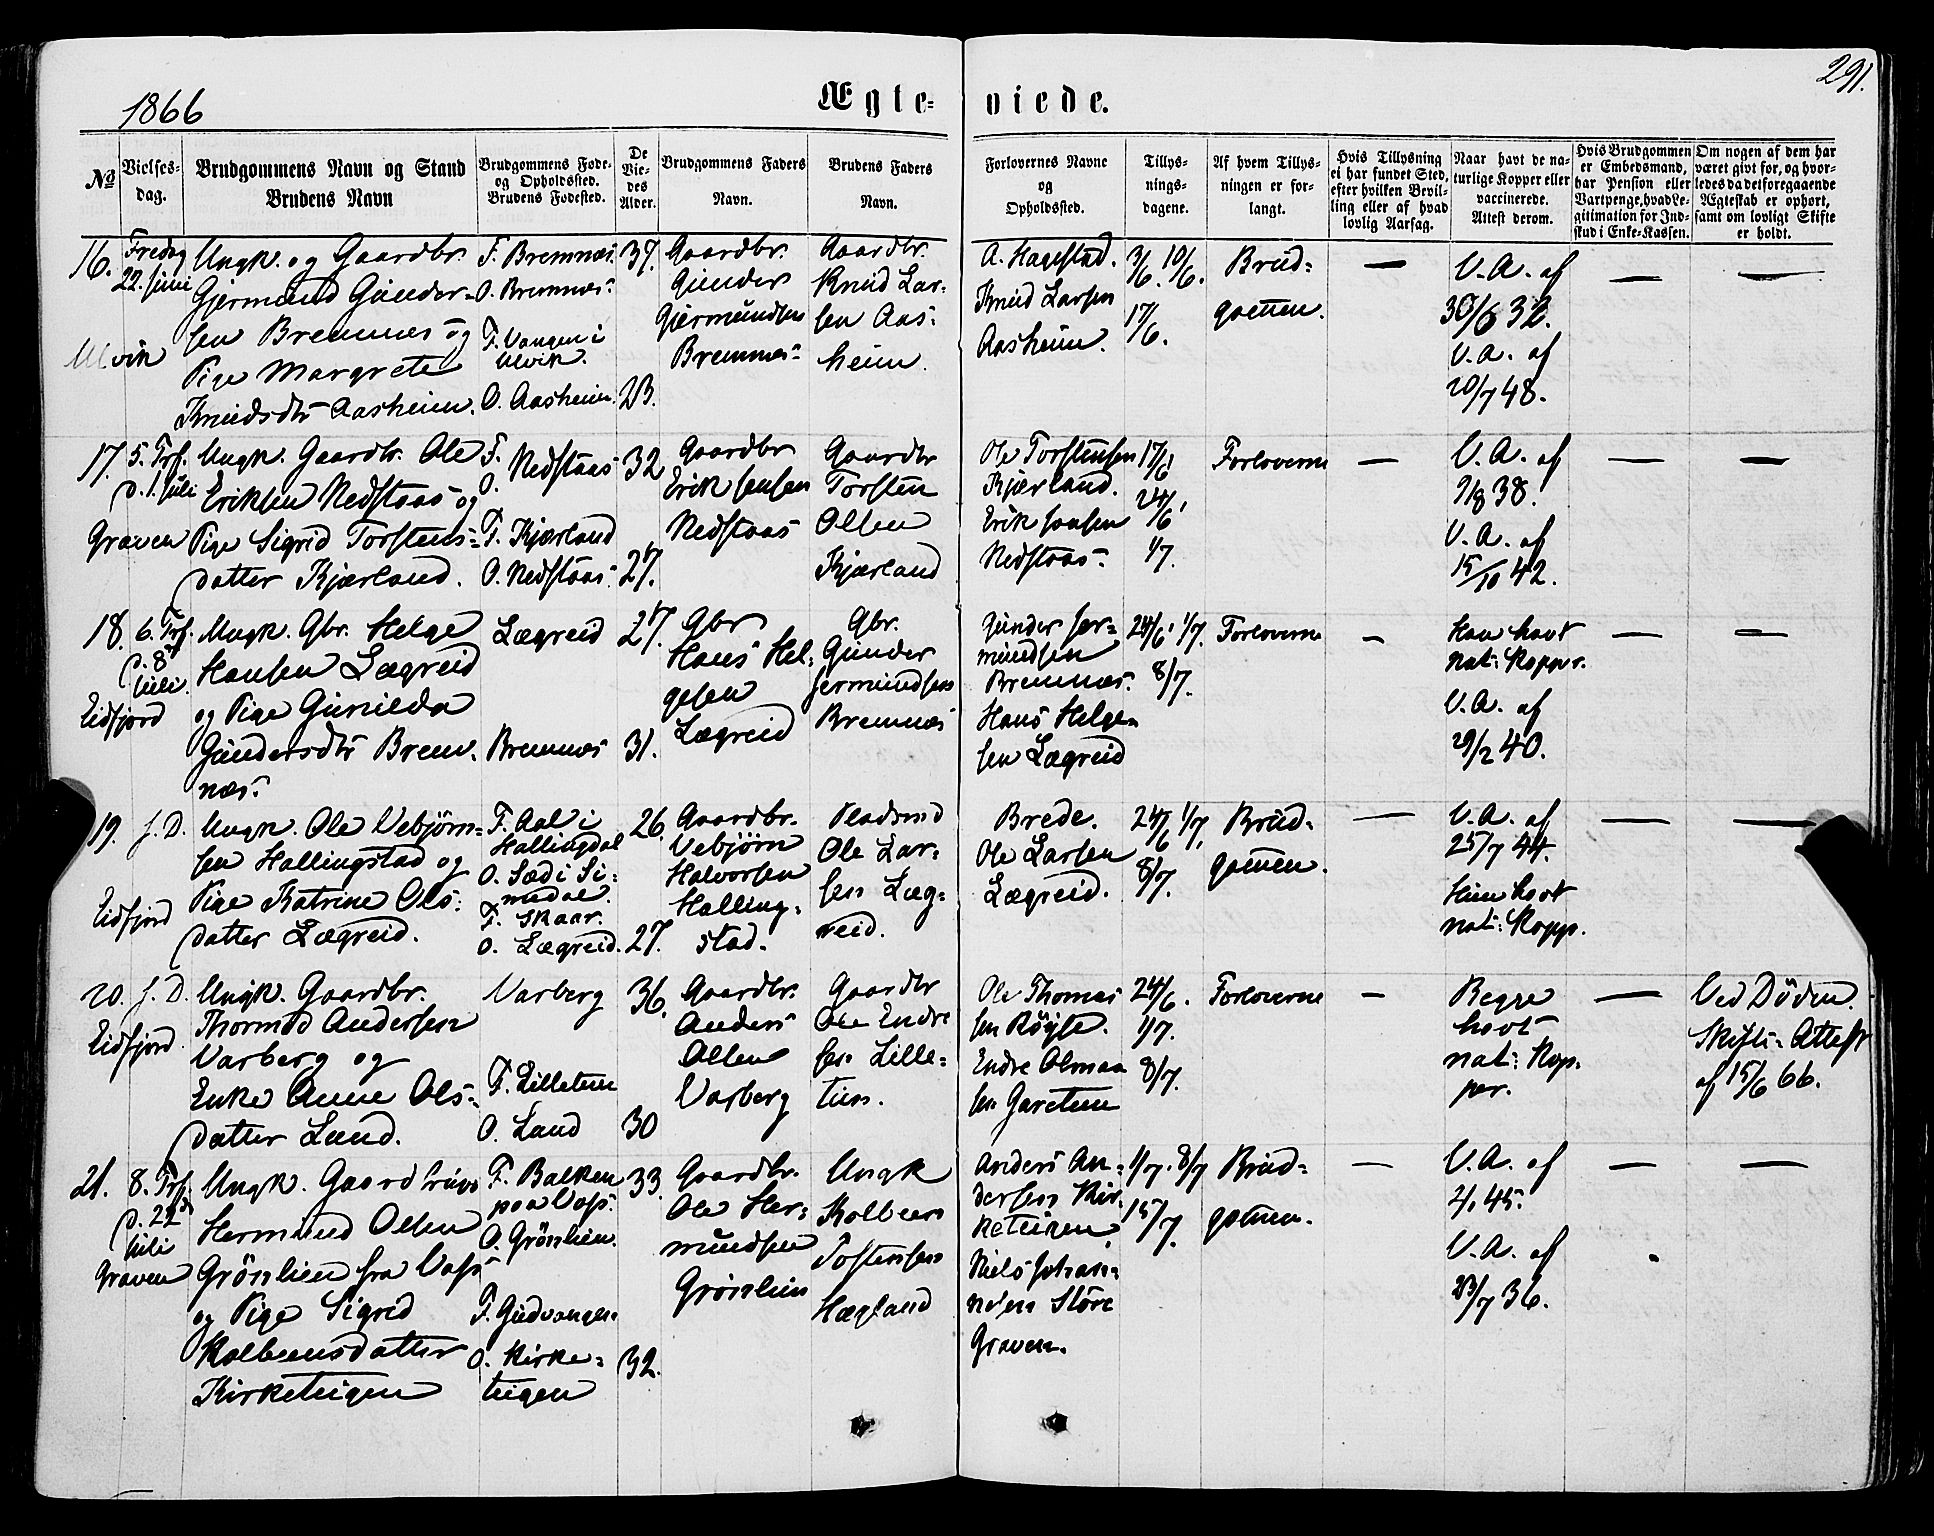 291.
1866
Ægte= viede.
No
Vielses-
dag.
Brudgommens Navn og Stand
Brudens Navn
Brudgommens Føde-
og Opholdssted.
Brudens Fødested.
De
Vie-
des
Alder.
Brudgommens Faders
Navn.
Brudens Faders
Navn.
Forlovernes Navne
og
Opholdssted.
Tillys-
nings-
dagene.
Af hvem Tillys-
ningen er for-
langt.
Hvis Tillysning
ei har fundet Sted,
efter hvilken Bevil-
ling eller af hvad
lovlig Aarsag.
Naar havt de na-
turlige Kopper eller
vaccinerede.
Attest derom.
Hvis Brudgommen
er Embedsmand,
har Pension eller
Vartpenge, hvad Le-
gitimation for Ind-
skud i Enke-Kassen.
Om nogen af dem har
været givt før, og hvor-
ledes da det foregaaende
Ægteskab er ophørt,
samt om lovligt Skifte
er holdt.
16.
Fredag
22. Juni
Ulvik
Ungk. og Gaardbr.
Gjermund Gunder-
sen Bremnes og
Pige Margrete
Knudsdtr Aasheim.
F. Bremnæs.
O. Bremnes.
F. Vangen i
Ulvik.
O. Aasheim.
37.
23.
Gaardbr.
Gunder
Gjermundsen
Bremnes
Gaardbr.
Knud Lar-
sen Aas-
heim.
A. Hagestad.
Knud Larsen
Aasheim.
3/6. 10/6.
17/6.
Brud-
gommen.
—
V. A. af
30/6 32.
V. A. af
20/7 48.
—
—
17.
5. Trf.
d. 1. Juli
Graven
Ungk. Gaardbr. Ole
Eriksen Nedstaas og
Pige Sigrid Torstens-
datter Kjærland.
F.
O. Nedstaas
F. Kjærland
O. Nedstaas
32
27.
Gaardbr
Erik Jensen
Nedstaas
Gaardbr
Torsten
Olsen
Kjærland
Ole Torstensen
Kjærland.
Erik Jensen
Nedstaas.
17/6
24/6
1/7.
Forloverne
—
V. A. af
9/8 38.
V. A. af
15/10 42.
—
—
18.
6. Trf.
d. 8
Juli.
Eidfjord
Ungk. Gbr. Helge
Hansen Lægreid
og Pige Gunilda
Gundersdtr Brem-
næs.
Lægreid
Bremnæs
27.
31.
Gbr
Hans Hel-
gesen
Lægreid
Gbr.
Gunder
Jermundsen
Bremnæs
Gunder Jer-
mundsen
Bremnæs.
Hans Helge-
sen Lægreid
24/6, 1/7.
8/7.
Forloverne
—
Han havt
nat: Kopper.
V. A. af
29/2 40.
—
—
19.
s. D.
Eidfjord
Ungk. Ole Vebjørn-
sen Hallingstad og
Pige Katrine Ols-
datter Lægreid.
F. Aal i
Hallingdal
O. Sæd i Si-
madal.
F. Skaar.
O. Lægreid.
26.
27.
Gaardbr.
Vebjørn
Halvorsen
Halling-
stad.
Pladsmd
Ole Lar-
sen Læg-
reid.
Brede.
Ole Larsen
Lægreid.
24/6 1/7,
8/7.
Brud-
gommen.
—
V. A. af
25/7 44.
Hun havt
nat: Kopp.
—
—
20.
s. D.
Eidfjord
Ungk. Gaardbr.
Thormod Andersen
Varberg og
Enke Anne Ols-
datter Lund.
Varberg
F. Lilletun
O. Lund
36.
30
Gaardbr.
Anders
Olsen
Varberg
Gaardbr
Ole Endre
sen Lille-
tun.
Ole Thomas
sen Røyte.
Endre Olman
sen Garetun
24/6.
1/7.
8/7.
Forloverne
—
Begge
havt
nat: Kop-
per.
—
Ved Døden.
Skifte-Attest
af 15/6 66.
21.
8. Trf.
d. 22
Juli
Graven
Ungk. Gaardbruger
Hermund Olsen
Grønlien fra Voss
og Pige Sigrid
Kolbeensdatter
Kirketeigen
F. Balken
paa Voss.
O. Grønlien.
F. Gudvangen
O. Kirke-
teigen
33.
32.
Gaardbr.
Ole Her-
mundsen
Grønlien
Ungk
Kolbeen
Tostensen
Hægland
Anders An-
dersen Kir-
keteigen,
Niels Johan-
nesen Støre
Graven.
1/7. 8/7
15/7.
Brud-
gommen.
—
V. A. af
2/1 45.
V. A. af
23/7 36.
—
—